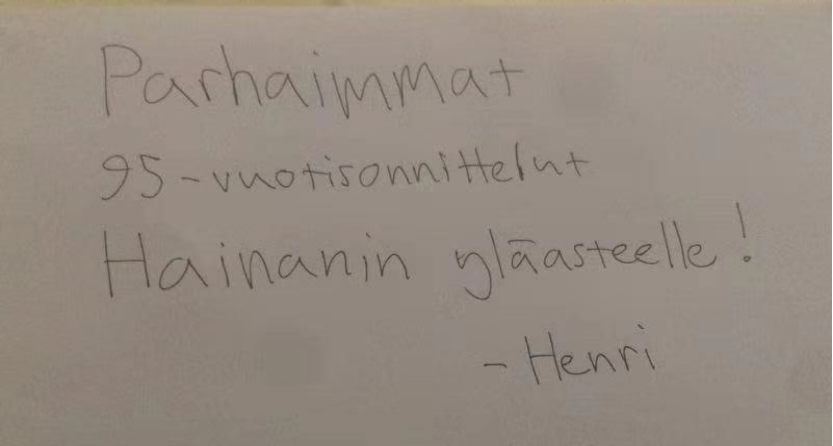 Parhaimmat
95-vuotisonnittelut
Hainanin yläasteelle!
-Henri